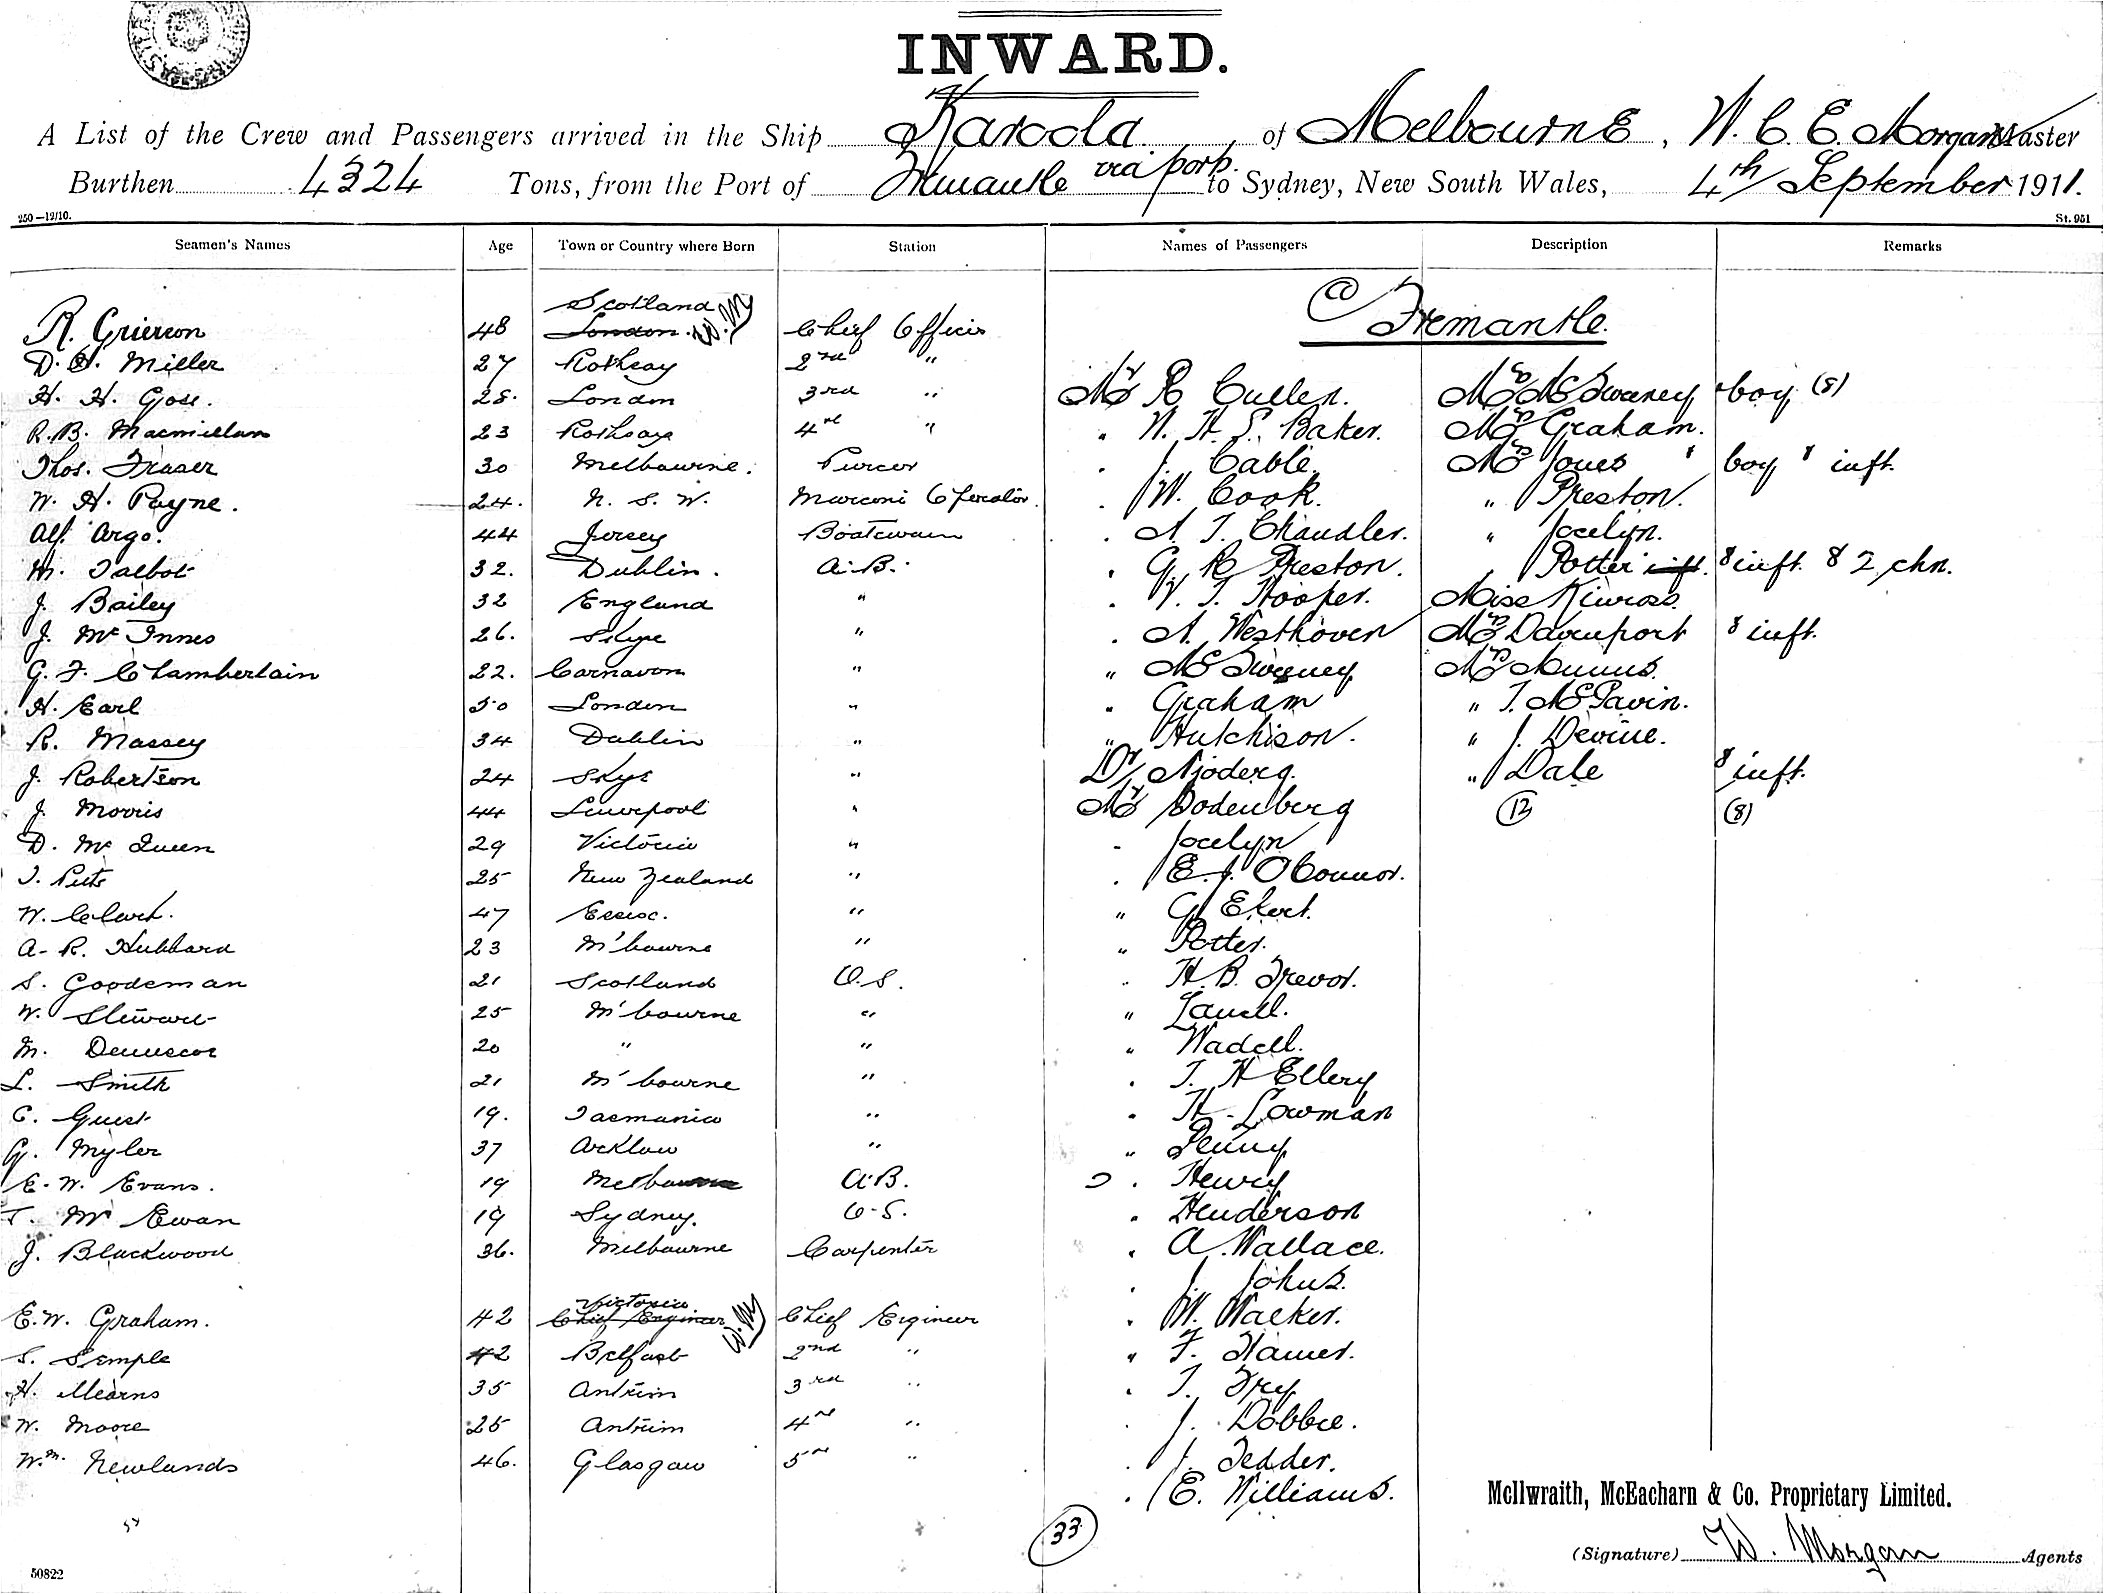 INWARD.
A List of the Crew and Passengers arrived in the Ship Karoola of Melbourne, W. C. E. Morgan Master
Burthen 4324 Tons, from the Port of Fremantle via ports to Sydney, New South Wales, 4th September 1911.
250—12/10. St. 951
Seamen's Names Age Town or Country where Born Station Names of Passengers Description Remarks
Scotland W.M. @ Fremantle.
R. Grierson 48 London. Chief Officer
D. H. Miller 27 Rothsay 2nd "
H. H. Gose. 28. London 3rd " Mr R Cullen. Mrs McSweeney boy (8)
R. B. Macmillan 23 Rothsay 4th " " W. H. S. Baker. Mrs Graham.
Thos. Fraser 30 Melbourne. Purser " J. Cable. Mrs Jones & boy & inft.
W. H. Payne. 24. N. S. W. Marconi Operator. " W. Cook. " Preston.
Alf. Argo. 44 Jersey Boatswain " A. T. Chandler. " Jocelyn.
M. Talbot 32. Dublin. A.B. " G. R Preston. Potter inft. & inft. & 2 chn.
J. Bailey 32 England " " V. T. Hooper. Miss Kinross.
J. Mc Innes 26. Skye " " A. Westhoven Mrs Davenport & inft.
G. F. Chamberlain 22. Carnavon " " McSweeney Mrs
H. Earl 50 London " " Graham " T. McPavin.
R. Massey 34 Dublin " " Hutchison. " J. Devine.
J. Robertson 24 Skye " Dr Njoderg. " Dale & inft.
J. Morris 44 Liverpool " Mr Dodenberg 12 (8)
D. Mc Queen 29 Victoria " " Jocelyn
J. Pitts 25 New Zealand " " E. J. O'Connor.
W. Clark. 47 Essex. " " G. Ekert.
A. R. Hubbard 23 M'bourne " " Potter.
S. Goodeman 21 Scotland O.S. " H. B. Trevor.
W. Stewart 25 M'bourne " "
M. 20 " " " Wadell.
L. Smith 21 M'bourne " " T. H Ellery
C. Guest 19. Tasmania " " H. Lowman
G. Myler 37 Arklow " " Penny
E. W. Evans. 19 Melbourne A.B. " Henry
T. Mc Ewan 19 Sydney. O.S. " Henderson
J. Blackwood 36. Melbourne Carpenter " A. Wallace.
" J. Johns.
Victoria W.M.
E. W. Graham. 42 Chief Engineer Chief Engineer " W. Walker.
S. Semple 42 Belfast 2nd " " F. Hamer.
H. Mearns 35 Antrim 3rd " " T. Fry
W. Moore 25 Antrim 4th " " J. Dobbie.
Wm. Newlands 46. Glasgow 5th " " J. Tedder.
" E. Williams.
33
McIlwraith, McEacharn & Co. Proprietary Limited.
(Signature) W. Morgan Agents
50822